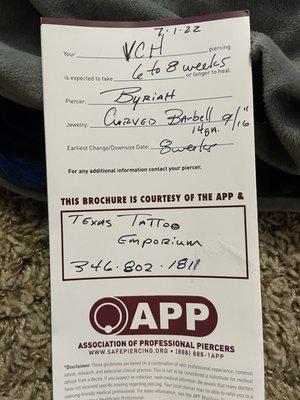 7.1.22
Your VCH piercing
is expected to take 6 to 8 weeks or longer to heal.
Piercer: Byriah
Jewelry: Curved Barbell 9/16"
14ga.
Earliest Change/Downsize Date: 8 weeks
For any additional information contact your piercer.
THIS BROCHURE IS COURTESY OF THE APP &
Texas Tattoo
Emporium
346.802.1811
APP
ASSOCIATION OF PROFESSIONAL PIERCERS
WWW.SAFEPIERCING.ORG • (888) 888-1APP
*Disclaimer: These guidelines are based on a combination of vast professional experience, common
sense, research, and extensive clinical practice. This is not to be considered a substitute for medical
advice from a doctor. If you suspect an infection, seek medical attention. Be aware that many doctors
have not received specific training regarding piercing. Your local piercer may be able to refer you to a
piercing-friendly medical professional. For more information, see the APP Brochure